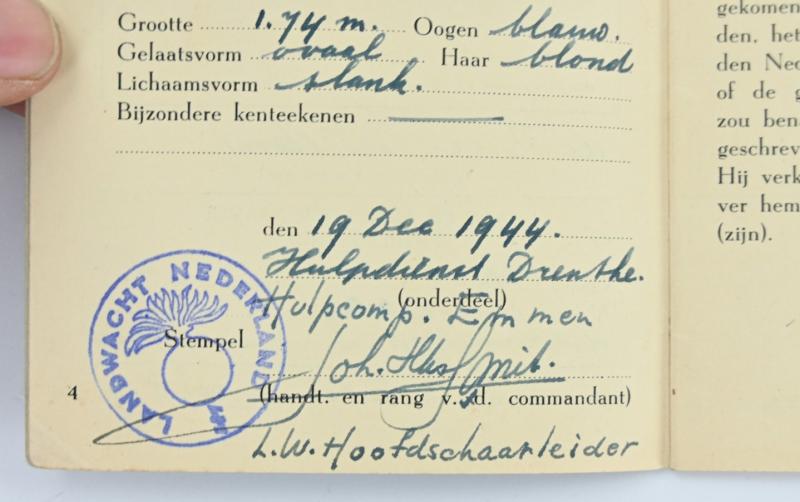 Grootte 1.74 m. Oogen blauw.
Gelaatsvorm ovaal Haar blond
Lichaamsvorm slank.
Bijzondere kenteekenen
den 19 Dec 1944.
Hulpdienst Drenthe.
(onderdeel)
Hulpcomp. Emmen
LANDWACHT NEDERLAND
Stempel
Joh. Smit.
(handt. en rang v. d. commandant)
L.W. Hoofdschaarleider
4
gekomen
den, het
den Ned
of de g
zou ben
geschrev
Hij verk
ver hem
(zijn).